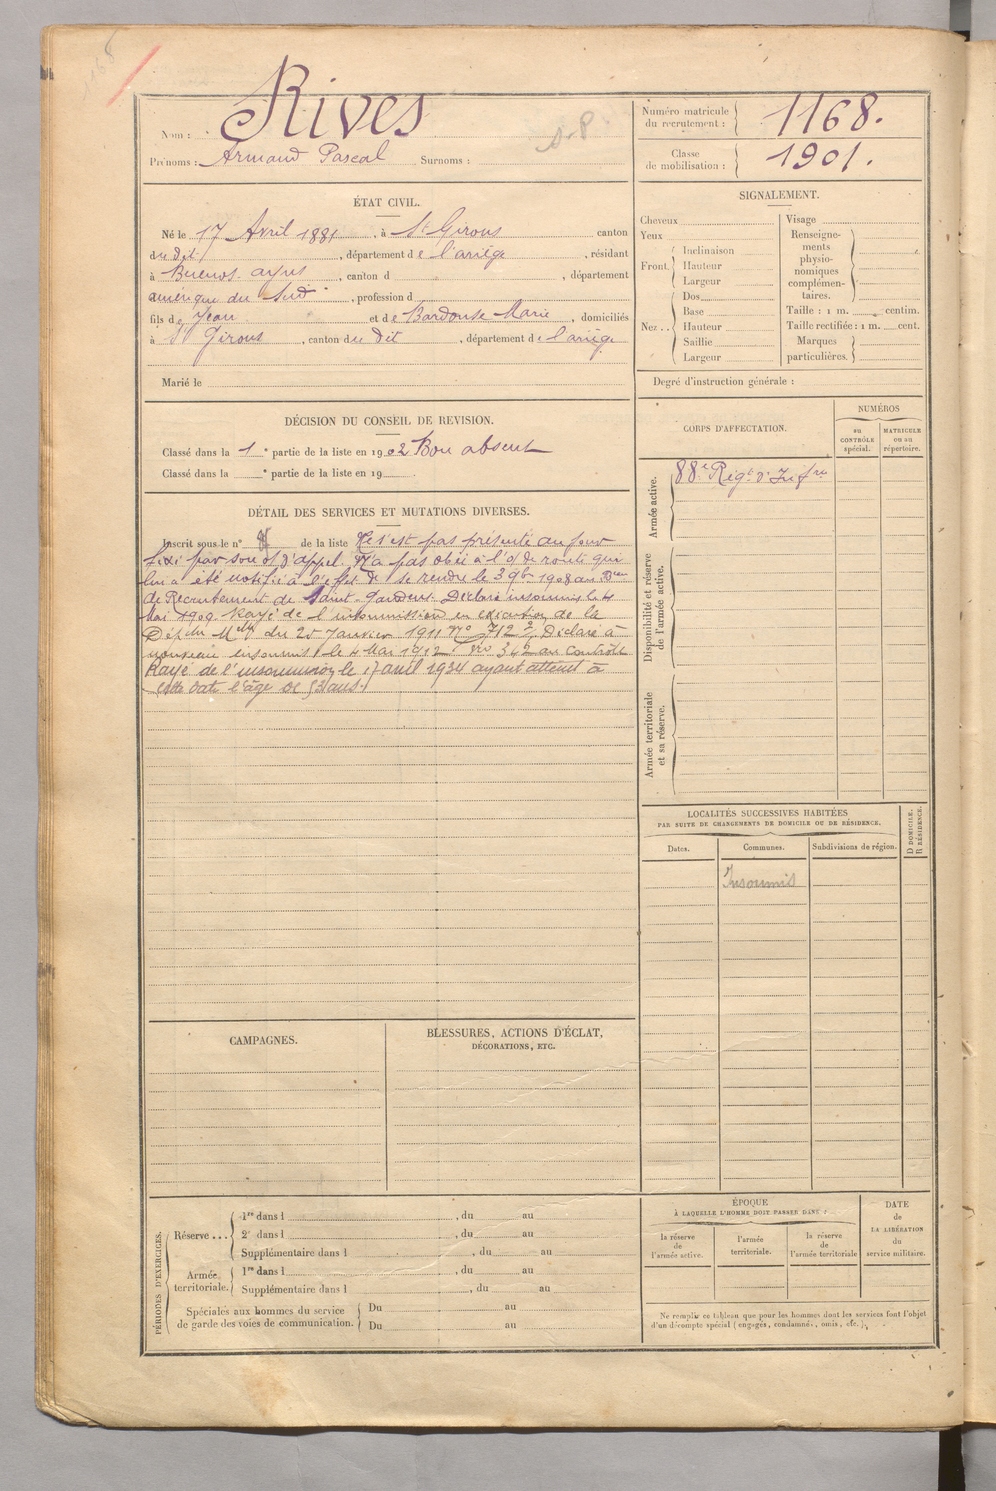 Nom : Rives
Prénoms : Armand Pascal Surnoms :
Numéro matricule du recrutement : 1168.
Classe de mobilisation : 1901.
ÉTAT CIVIL.
Né le 17 Avril 1881, à St Girons canton
du dit, département de l'ariège, résidant
à Buenos ayres, canton d , département
amérique du Sud, profession d
fils de Jean et de Bardouse Marie, domiciliés
à St Girons, canton du dit, département de l'ariège
Marié le
SIGNALEMENT.
Cheveux
Yeux
Front. Inclinaison
Hauteur
Largeur
Nez.. Dos
Base
Hauteur
Saillie
Largeur
Visage
Renseignements physionomiques complémentaires.
Taille : 1 m. centim.
Taille rectifiée : 1 m. cent.
Marques particulières.
Degré d'instruction générale :
DÉCISION DU CONSEIL DE REVISION.
Classé dans la 1e partie de la liste en 1902 Bon absent
Classé dans la e partie de la liste en 19
DÉTAIL DES SERVICES ET MUTATIONS DIVERSES.
Inscrit sous le n° de la liste Ne s'est pas présenté au jour
fixé par son o/ d'appel. N'a pas obéi à l'o/ de route qui
lui a été notifié à l'effet de se rendre le 3 9bre 1908 au Bau
de Recrutement de Saint-Gaudens. Déclaré insoumis le 4
Mai 1909. Rayé de l'insoumission en exécution de la
du 25 Janvier 1911 N° 712 Déclaré à
nouveau insoumis le 4 Mai 1912 Nro 342 au contrôle
Rayé de l'insoumission le 17 avril 1934 ayant atteint à
cette date l'âge de 53 ans.
CORPS D'AFFECTATION.
NUMÉROS
au CONTRÔLE spécial.
MATRICULE ou au répertoire.
Armée active.
88e Regt d'Infrie
Disponibilité et réserve de l'armée active.
Armée territoriale et sa réserve.
LOCALITÉS SUCCESSIVES HABITÉES
PAR SUITE DE CHANGEMENTS DE DOMICILE OU DE RÉSIDENCE.
D DOMICILE.
R RÉSIDENCE.
Dates. Communes. Subdivisions de région.
Insoumis
CAMPAGNES.
BLESSURES, ACTIONS D'ÉCLAT,
DÉCORATIONS, ETC.
PÉRIODES D'EXERCICES.
Réserve ... 1re dans l , du au
2e dans l , du au
Supplémentaire dans l , du au
Armée territoriale. 1re dans l , du au
Supplémentaire dans l , du au
Spéciales aux hommes du service
de garde des voies de communication.
Du au
Du au
ÉPOQUE
À LAQUELLE L'HOMME DOIT PASSER DANS :
la réserve de l'armée active.
l'armée territoriale.
la réserve de l'armée territoriale
DATE
de
LA LIBÉRATION
du
service militaire.
Ne remplir ce tableau que pour les hommes dont les services font l'objet
d'un décompte spécial (engagés, condamnés, omis, etc.).